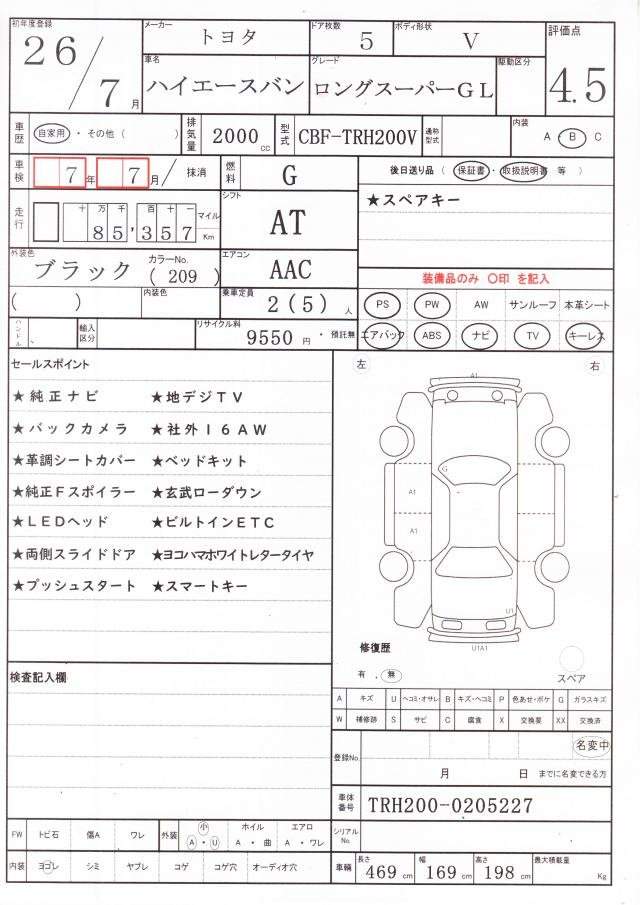 初年度登録 26/7月
メーカー トヨタ
ドア枚数 5
ボディ形状 V
評価点 4.5
車名 ハイエースバン
グレード ロングスーパーGL
駆動区分
車歴 自家用・その他( )
排気量 2000cc
型式 CBF-TRH200V
通称型式
内装 A B C
車検 7年 7月/ 抹消
燃料 G
後日送り品( 保証書・取扱説明書 等 )
走行 十万千百十一 85,357 マイル Km
シフト AT
★スペアキー
外装色 ブラック
カラーNo. (209)
エアコン AAC
装備品のみ 〇印 を記入
( )
内装色
乗車定員 2(5)人
PS PW AW サンルーフ 本革シート
ハンドル
輸入区分
リサイクル料 9550円・預託無
エアバック ABS ナビ TV キーレス
セールスポイント
★純正ナビ ★地デジTV
★バックカメラ ★社外16AW
★革調シートカバー ★ベッドキット
★純正Fスポイラー ★玄武ローダウン
★LEDヘッド ★ビルトインETC
★両側スライドドア ★ヨコハマホワイトレタータイヤ
★プッシュスタート ★スマートキー
左 右
A1
G
A1
A1
U1
U1A1
修復歴
有 . 無
スペア
検査記入欄
A キズ U ヘコミ・オサレ B キズ・ヘコミ P 色あせ・ボケ G ガラスキズ
W 補修跡 S サビ C 腐食 X 交換要 XX 交換済
登録No. 名変中
月 日 までに名変できる方
車体番号 TRH200-0205227
シリアルNo.
FW トビ石 傷A ワレ
外装 小 A・U ホイル A・曲 エアロ A・ワレ
内装 ヨゴレ シミ ヤブレ コゲ コゲ穴 オーディオ穴
車輛 長さ 469cm 幅 169cm 高さ 198cm 最大積載量 Kg